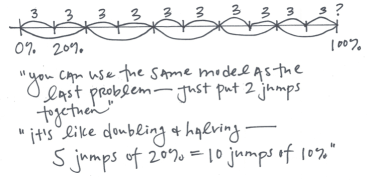 3 3 3 3 3 3 3 3 3 3 ?
0% 20% 100%
"you can use the same model as the
last problem — just put 2 jumps
together"
"it's like doubling & halving —
5 jumps of 20% = 10 jumps of 10%"